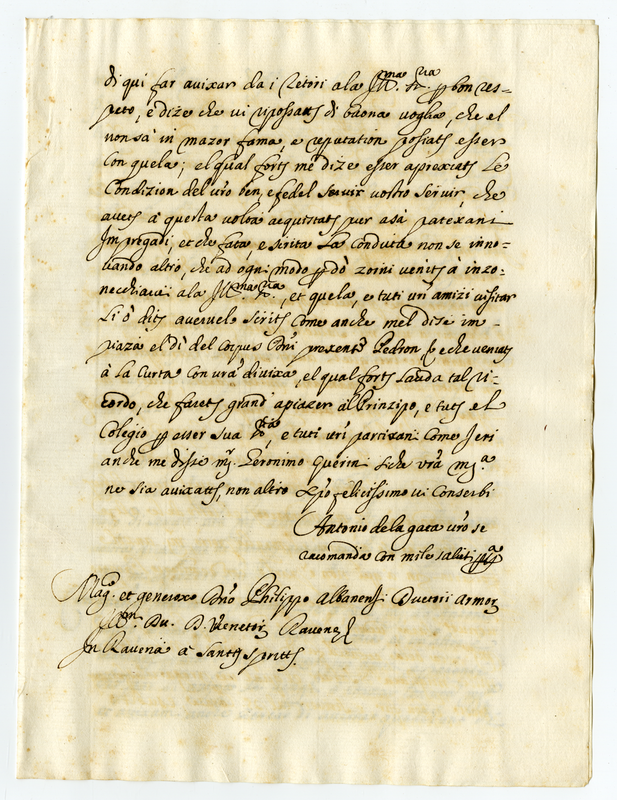 di qui far auixar da i Retori a la Ill.ma S.ria p bon res=
peto, e dize che vi ripossatts di buona voglia, che el
non sà in mazor fama, e reputation possiats esser
con quela; el qual forts me dize esser aprexiats Le
Condizion del vro ben, e fedel seruir vostro seruir, che
auets à questa volta aequistats per asà patexani
Impregadi, et che fata, e scrita La Conduta non se inno=
uando altro, che ad ogni modo pdò zorni venits à inzo=
necchiarvi a la Ill.ma S.ria, et quela, e tuti vri amizi visitar
Li ò dits auervele scrits Come anche mel dize im
piaza el dì del corpus Dni prexente Pedron, che veniats
à La Curta Con vrà diuixa, el qual forts Lauda tal ri=
cordo, che farets grand apiazer al Prinzipo, e tuts el
Colegio p esser sua S.ria, e tuti vtri partixani Come Jeri
anche me disse mj. Geronimo Querin siche vrà M.a
ne sia auixatts, non altro Xpo felicissimo vi Conserbi
Antonio de la gata vro se
racomanda Con mile saluti
Mag.co et generoxo Dno Philippo Albanensi Ductori Armor
Ill.mi Du. D. Venetor Ravene
In Ravena à Santts Spritts.